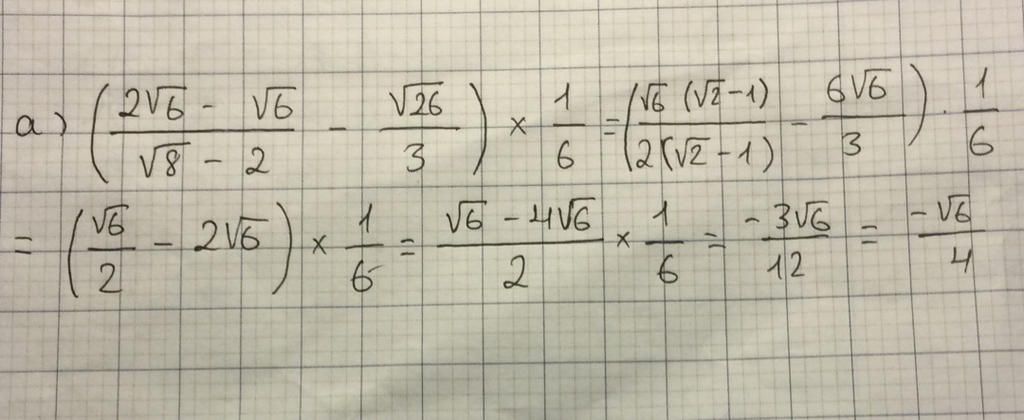 a) ((2√6 - √6)/(√8 - 2) - √26/3) × 1/6 = ((√6 (√2 - 1))/(2(√2 - 1)) - 6√6/3) · 1/6
= (√6/2 - 2√6) × 1/6 = (√6 - 4√6)/2 × 1/6 = -3√6/12 = -√6/4